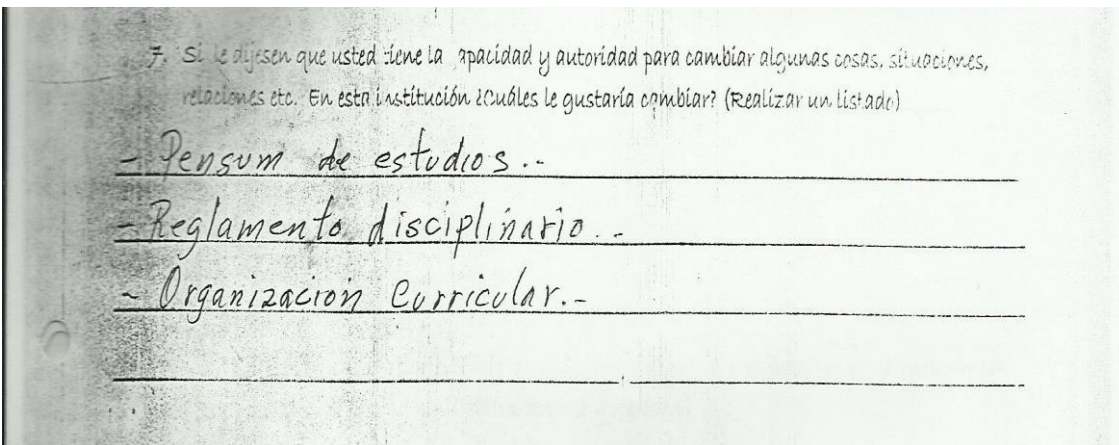 7. Si le dijesen que usted tiene la apacidad y autoridad para cambiar algunas cosas, situaciones,
relaciones etc. En esta institución ¿Cuáles le gustaría cambiar? (Realizar un listado)
- Pensum de estudios..-
- Reglamento disciplinario..-
- Organización Curricular.-